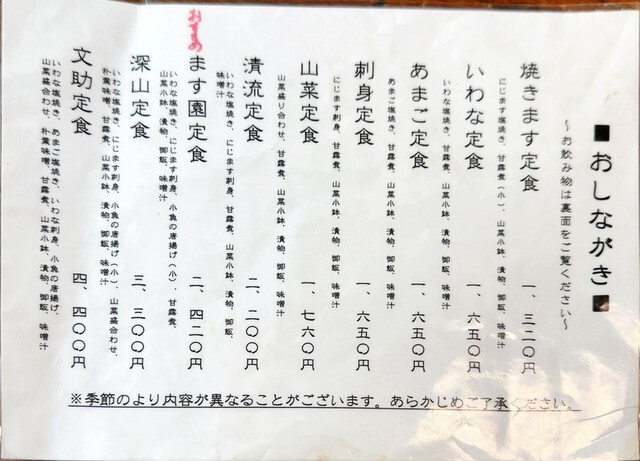 ■おしながき■
～お飲み物は裏面をご覧ください～
焼きます定食 一、三二〇円
にじます塩焼き、甘露煮(小)、山菜小鉢、漬物、御飯、味噌汁
いわな定食 一、六五〇円
いわな塩焼き、甘露煮、山菜小鉢、漬物、御飯、味噌汁
あまご定食 一、六五〇円
あまご塩焼き、甘露煮、山菜小鉢、漬物、御飯、味噌汁
刺身定食 一、六五〇円
にじます刺身、甘露煮、山菜小鉢、漬物、御飯、味噌汁
山菜定食 一、七六〇円
山菜盛り合わせ、甘露煮、山菜小鉢、漬物、御飯、味噌汁
清流定食 二、二〇〇円
いわな塩焼き、にじます刺身、甘露煮、山菜小鉢、漬物、御飯、
味噌汁
おすすめ
ます園定食 二、四二〇円
いわな塩焼き、にじます刺身、小魚の唐揚げ(小)、甘露煮、
山菜小鉢、漬物、御飯、味噌汁
深山定食 三、三〇〇円
いわな塩焼き、にじます刺身、小魚の唐揚げ(小)、山菜盛合わせ、
朴葉味噌、甘露煮、山菜小鉢、漬物、御飯、味噌汁
文助定食 四、四〇〇円
いわな塩焼き、あまご塩焼き、いわな刺身、小魚の唐揚げ、
山菜盛合わせ、朴葉味噌、甘露煮、山菜小鉢、漬物、御飯、味噌汁
※季節のより内容が異なることがございます。あらかじめご了承ください。